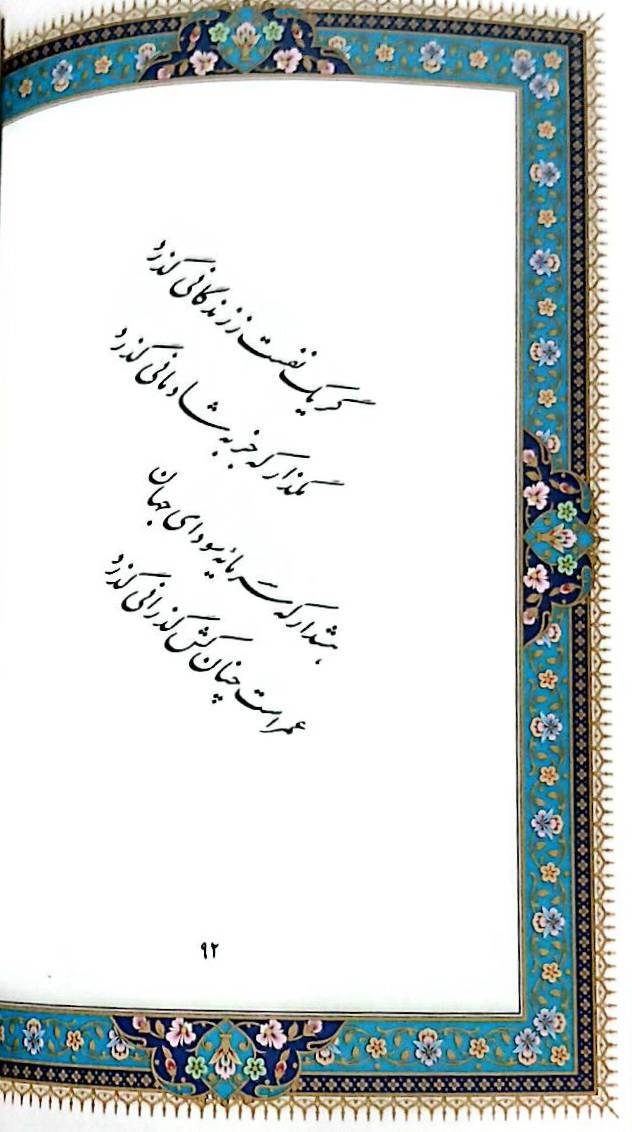 گر یک نفست ز زندگانی گذرد
مگذار که جز به شادمانی گذرد
هشدار که سرمایهٔ سودای جهان
عمر است چنان کش گذرانی گذرد
۹۲